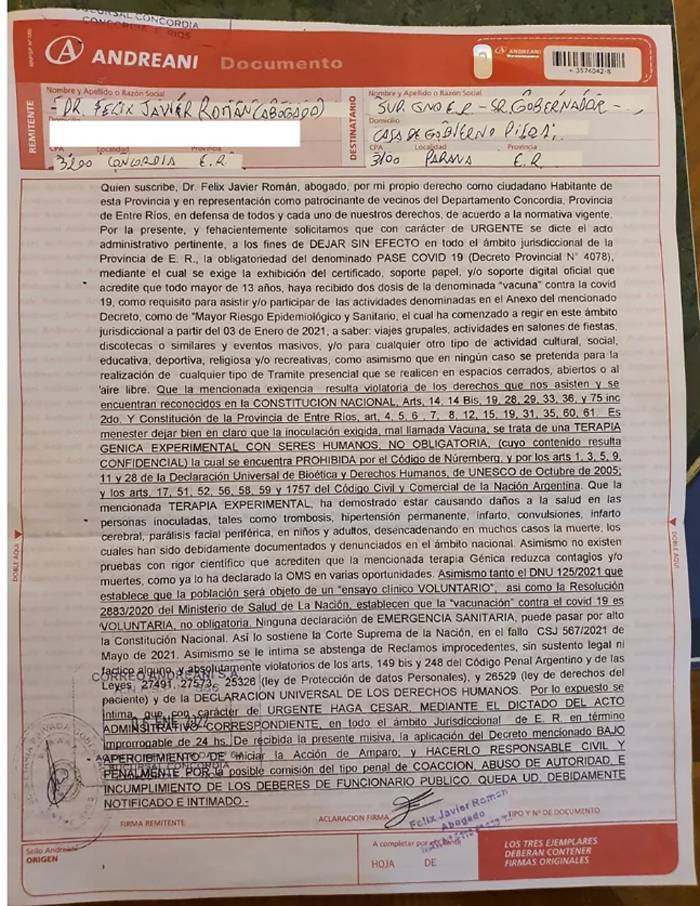 SUCURSAL CONCORDIA
CONCORDIA E. RIOS
ANDREANI Documento
ANDREANI
+ 3574042-8
REMITENTE
Nombre y Apellido o Razón Social
DR. FELIX JAVIER ROMAN (ABOGADO)
CPA Localidad Provincia
3200 CONCORDIA E.R
DESTINATARIO
Nombre y Apellido o Razón Social
SUP. GNO E.R - SR. GOBERNADOR -
Domicilio
CASA DE GOBIERNO
CPA Localidad Provincia
3100 PARANA E.R
Quien suscribe, Dr. Felix Javier Román, abogado, por mi propio derecho como ciudadano Habitante de
esta Provincia y en representación como patrocinante de vecinos del Departamento Concordia, Provincia
de Entre Ríos, en defensa de todos y cada uno de nuestros derechos, de acuerdo a la normativa vigente.
Por la presente, y fehacientemente solicitamos que con carácter de URGENTE se dicte el acto
administrativo pertinente, a los fines de DEJAR SIN EFECTO en todo el ámbito jurisdiccional de la
Provincia de E. R., la obligatoriedad del denominado PASE COVID 19 (Decreto Provincial N° 4078),
mediante el cual se exige la exhibición del certificado, soporte papel, y/o soporte digital oficial que
acredite que todo mayor de 13 años, haya recibido dos dosis de la denominada "vacuna" contra la covid
19, como requisito para asistir y/o participar de las actividades denominadas en el Anexo del mencionado
Decreto, como de "Mayor Riesgo Epidemiológico y Sanitario, el cual ha comenzado a regir en este ámbito
jurisdiccional a partir del 03 de Enero de 2021, a saber: viajes grupales, actividades en salones de fiestas,
discotecas o similares y eventos masivos, y/o para cualquier otro tipo de actividad cultural, social,
educativa, deportiva, religiosa y/o recreativas, como asimismo que en ningún caso se pretenda para la
realización de cualquier tipo de Tramite presencial que se realicen en espacios cerrados, abiertos o al
aire libre. Que la mencionada exigencia resulta violatoria de los derechos que nos asisten y se
encuentran reconocidos en la CONSTITUCION NACIONAL, Arts, 14, 14 Bis, 19, 28, 29, 33, 36, y 75 inc
2do. Y Constitución de la Provincia de Entre Ríos, art, 4, 5, 6 , 7, 8, 12, 15, 19, 31, 35, 60, 61. Es
menester dejar bien en claro que la inoculación exigida, mal llamada Vacuna, se trata de una TERAPIA
GENICA EXPERIMENTAL CON SERES HUMANOS, NO OBLIGATORIA, (cuyo contenido resulta
CONFIDENCIAL) la cual se encuentra PROHIBIDA por el Código de Núremberg, y por los arts 1, 3, 5, 9,
11 y 28 de la Declaración Universal de Bioética y Derechos Humanos, de UNESCO de Octubre de 2005;
y los arts, 17, 51, 52, 56, 58, 59 y 1757 del Código Civil y Comercial de la Nación Argentina. Que la
mencionada TERAPIA EXPERIMENTAL, ha demostrado estar causando daños a la salud en las
personas inoculadas, tales como trombosis, hipertensión permanente, infarto, convulsiones, infarto
cerebral, parálisis facial periférica, en niños y adultos, desencadenando en muchos casos la muerte, los
cuales han sido debidamente documentados y denunciados en el ámbito nacional. Asimismo no existen
pruebas con rigor científico que acrediten que la mencionada terapia Génica reduzca contagios y/o
muertes, como ya lo ha declarado la OMS en varias oportunidades. Asimismo tanto el DNU 125/2021 que
establece que la población será objeto de un "ensayo clínico VOLUNTARIO", así como la Resolución
2883/2020 del Ministerio de Salud de La Nación, establecen que la "vacunación" contra el covid 19 es
VOLUNTARIA, no obligatoria. Ninguna declaración de EMERGENCIA SANITARIA, puede pasar por
alto la Constitución Nacional. Así lo sostiene la Corte Suprema de la Nación, en el fallo CSJ 567/2021 de
Mayo de 2021. Asimismo se le intima se abstenga de Reclamos improcedentes, sin sustento legal ni
factico alguno, y absolutamente violatorios de los arts, 149 bis y 248 del Código Penal Argentino y de las
CORREO ANDREANI S.A.
Leyes 27491, 27573, 25326 (ley de Protección de datos Personales), y 26529 (ley de derechos del
paciente) y de la DECLARACION UNIVERSAL DE LOS DERECHOS HUMANOS. Por lo expuesto se
intima, que con carácter de URGENTE HAGA CESAR, MEDIANTE EL DICTADO DEL ACTO
ENE 2022
ADMINISTRATIVO CORRESPONDIENTE, en todo el ámbito Jurisdiccional de E. R. en término
improrrogable de 24 hs. De recibida la presente misiva, la aplicación del Decreto mencionado BAJO
APERCIBIMIENTO de iniciar la Acción de Amparo; y HACERLO RESPONSABLE CIVIL Y
SUCURSAL CONCORDIA
PENALMENTE POR la posible comisión del tipo penal de COACCION, ABUSO DE AUTORIDAD, E
INCUMPLIMIENTO DE LOS DEBERES DE FUNCIONARIO PUBLICO. QUEDA UD. DEBIDAMENTE
NOTIFICADO E INTIMADO.-
FIRMA REMITENTE ACLARACION FIRMA TIPO Y Nº DE DOCUMENTO
Felix Javier Román
Abogado
Sello Andreani
ORIGEN
A completar por
HOJA DE
LOS TRES EJEMPLARES
DEBERAN CONTENER
FIRMAS ORIGINALES
DOBLE AQUI
DOBLE AQUI